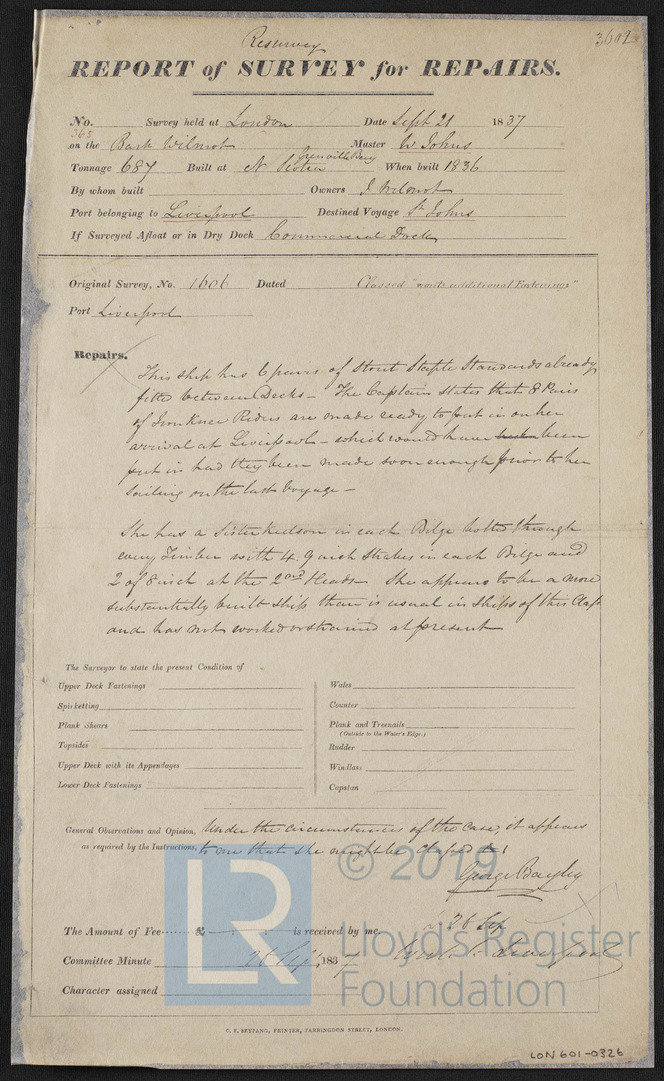 Resurvey
3602
REPORT of SURVEY for REPAIRS.
No. Survey held at London Date Sept 21 1837
365
on the Bark Wilmot Master W Johns
Tonnage 687 Built at N Scotia Granville Bay When built 1836
By whom built Owners J Wilmot
Port belonging to Liverpool Destined Voyage St Johns
If Surveyed Afloat or in Dry Dock Commercial Dock
Original Survey, No. 1606 Dated Classed "wants additional Fastenings"
Port Liverpool
Repairs.
This ship has 6 pairs of Stout Staple Standards already
fitted between Decks - The Captain states that 8 Pairs
of Iron Knee Riders are made ready to put in on her
arrival at Liverpool - which would have been
put in had they been made soon enough prior to her
Sailing on the last Voyage -
She has a Sister Keelson in each Bilge bolted through
every Timber with 4 9 inch Strakes in each Bilge and
2 of 8 inch at the 2nd Heads She appears to be a more
substantially built Ship than is usual in Ships of this Class
and has not worked or strained at present
The Surveyor to state the present Condition of
Upper Deck Fastenings
Wales
Spirketting
Counter
Plank Shears
Plank and Treenails
(Outside to the Water's Edge.)
Topsides
Rudder
Upper Deck with its Appendages
Windlass
Lower Deck Fastenings
Capstan
General Observations and Opinion, Under the circumstances of the case, it appears
as required by the Instructions, to me that she might be classed 1
George Bayley
© 2019
Lloyd's Register
Foundation
LR
26 Sep
The Amount of Fee £ : : is received by me,
Committee Minute 26 Sept 1837
Character assigned
C. F. SEYFANG, PRINTER, FARRINGDON STREET, LONDON.
LON601-0326